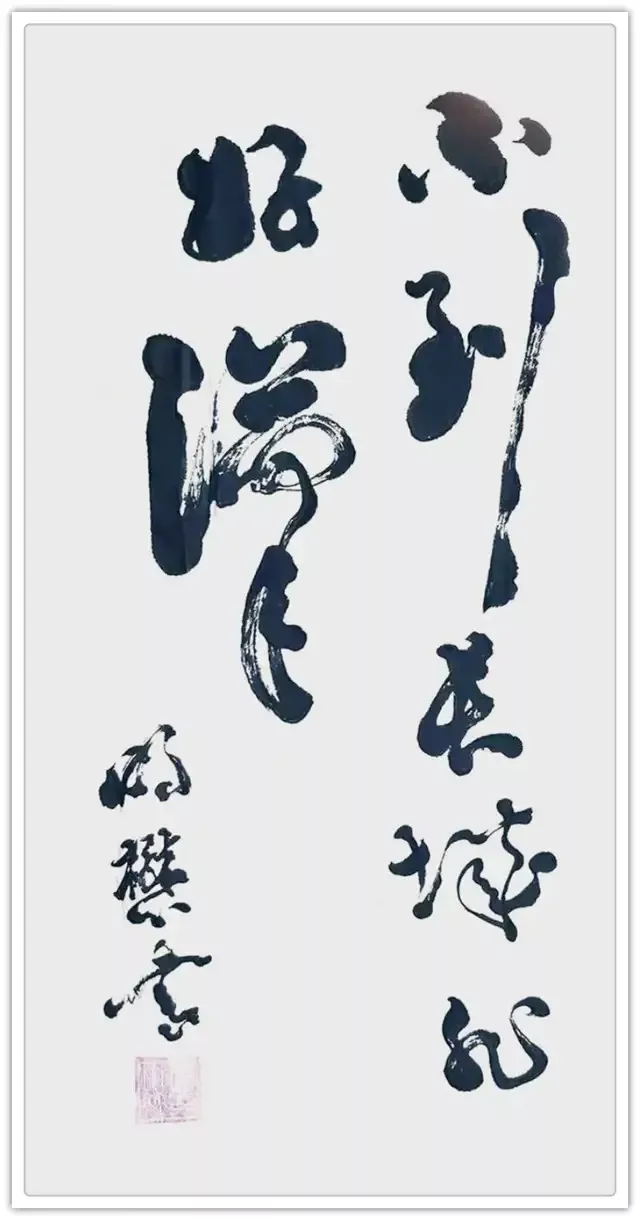 不到长城非
好汉
懋书